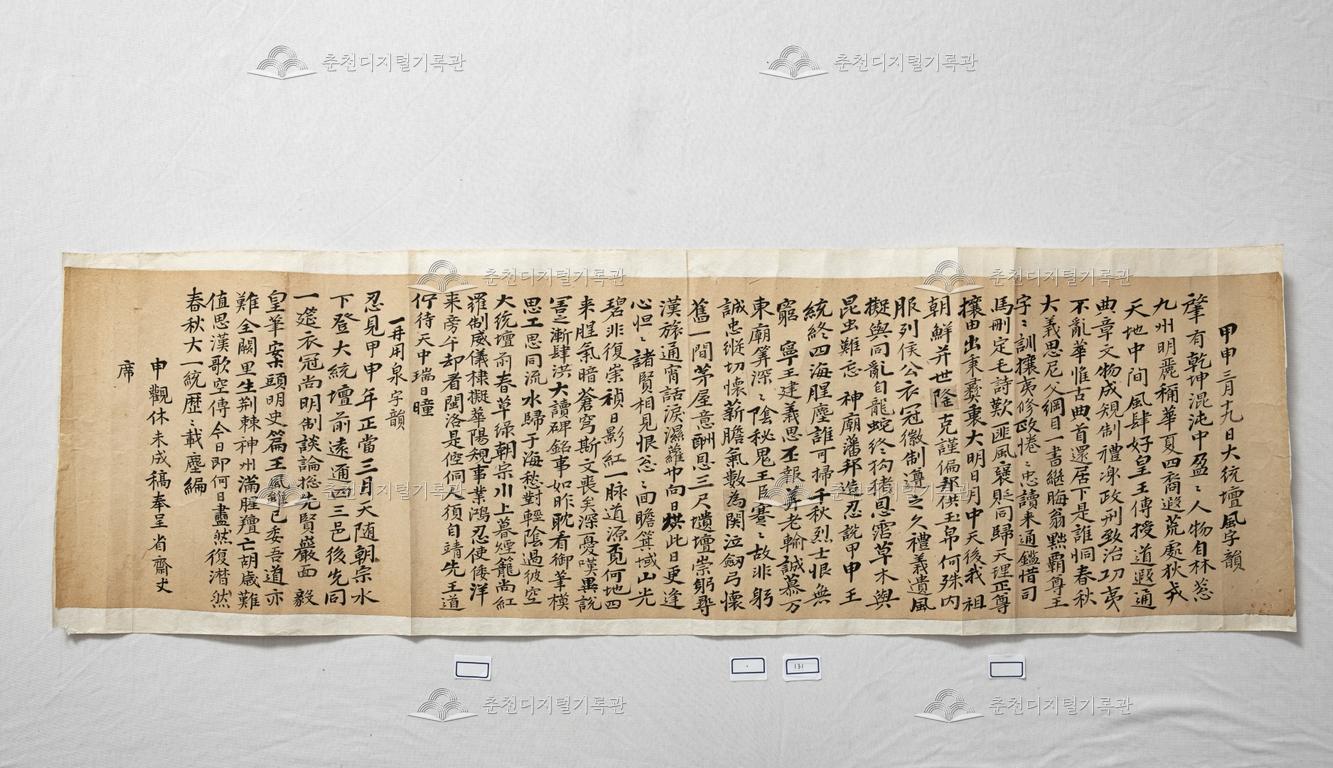 甲申三月十九日大統壇風字韻
肇有乾坤混沌中盈〻人物自林葱
九州明麗稱華夏四裔遐荒處狄戎
天地中間風肆好皇王傳授道遐通
典章文物成規制禮樂政刑致治功夷
不亂華惟古典首還居下是誰恫春秋
大義思尼父綱目一書繼晦翁黜霸尊王
字〻訓攘夷修政惓〻忠讀来通鑑惜司
馬刪定毛詩歎匪風襃貶同歸天理正尊
攘由出秉彛衷大明日月中天後我祖
朝鮮并世隆克謹偏邦供玉帛何殊内
服列侯公衣冠徽制遵之久禮義遺風
擬與同亂自龍蛇終狗猪恩霑草木與
昆虫難忘神廟藩邦造忍說甲申王
統終四海腥塵誰可掃千秋烈士恨無
窮寧王建義思丕報葬老輸誠慕万
東廟筭深〻陰秘鬼王臣蹇〻故非躬
誠忠縱切懷薪膽氣數為関泣劒弓懷
舊一間茅屋意酬恩三尺壝壇崇躬尋
漢旅通宵話淚濕蘿中向日烘此日更逢
心怛〻諸賢相見恨忩〻回瞻箕域山光
碧非復崇禎日影紅一脉道源覔何地四
来腥氣暗蒼穹斯文喪矣深憂嘆異說
害之漸肆洪大讀碑銘事如昨耽看御筆模
思工思同流水歸于海愁對輕陰過彼空
大統壇前春草綠朝宗川上暮煙籠尚紅
羅制威儀棣擬華陽規事業鴻忍使倭洋
来旁午却看閩洛是倥侗人須自靖先王道
佇待天中瑞日曈
一并用泉字韻
忍見甲申年正當三月天随朝宗水
下登大統壇前遠通四三邑後先同
一筵衣冠尚明制談論捴先賢巖面毅
皇筆案頭明史篇王風雖已委吾道亦
難全闕里生荆棘神州滿腥羶亡胡歲難
值思漢歌空傳今日即何日衋然復潸然
春秋大一統歷〻載塵編
申觀休未成稿奉呈省齋丈
席
131
춘천디지털기록관
춘천디지털기록관
춘천디지털기록관
춘천디지털기록관
춘천디지털기록관
춘천디지털기록관
춘천디지털기록관
춘천디지털기록관